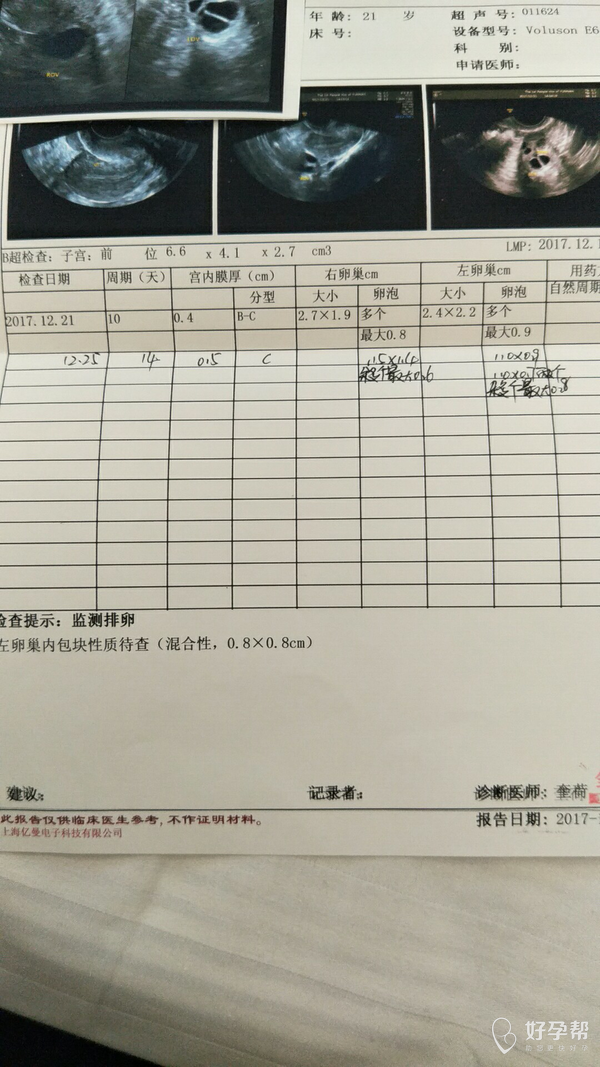 年 龄: 21 岁 超 声 号: 011624
床 号: 设备型号: Voluson E6
科 别:
申请医师:
ROV
LOV
B超检查: 子宫: 前 位 6.6 x 4.1 x 2.7 cm3 LMP: 2017.12.1
检查日期 周期 (天) 宫内膜厚 (cm) 右卵巢cm 左卵巢cm 用药
分型 大小 卵泡 大小 卵泡 自然周期
2017.12.21 10 0.4 B-C 2.7×1.9 多个 2.4×2.2 多个
最大0.8 最大0.9
12.25 14 0.5 C 1.5×1.4 1.0×0.9
检查提示: 监测排卵
左卵巢内包块性质待查 (混合性, 0.8×0.8cm)
建议: 记录者: 诊断医师:
此报告仅供临床医生参考, 不作证明材料。 报告日期: 2017-
上海亿曼电子科技有限公司
好孕帮